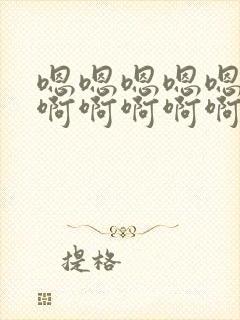 嗯嗯嗯嗯嗯
啊啊啊啊啊
提格